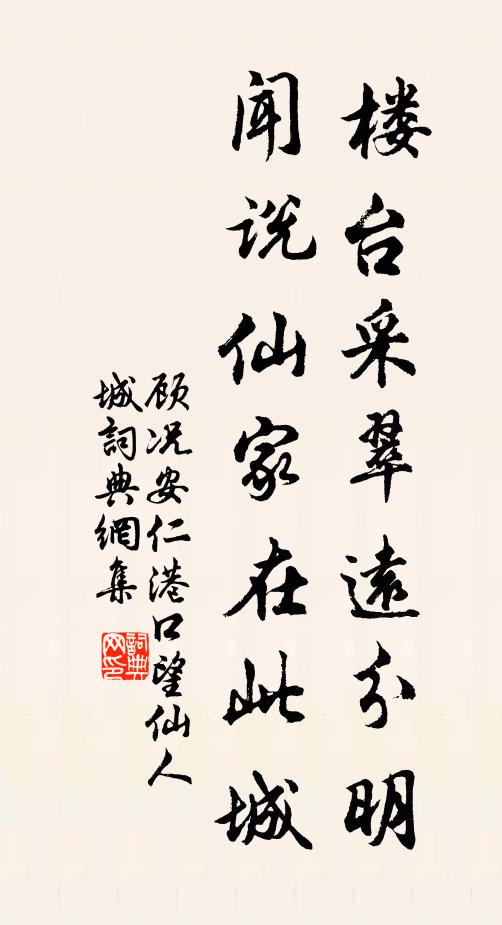 楼台采翠遠分明
闻说仙家在此城
顾况安仁港口望仙人
城詞典網集
詞典
网印